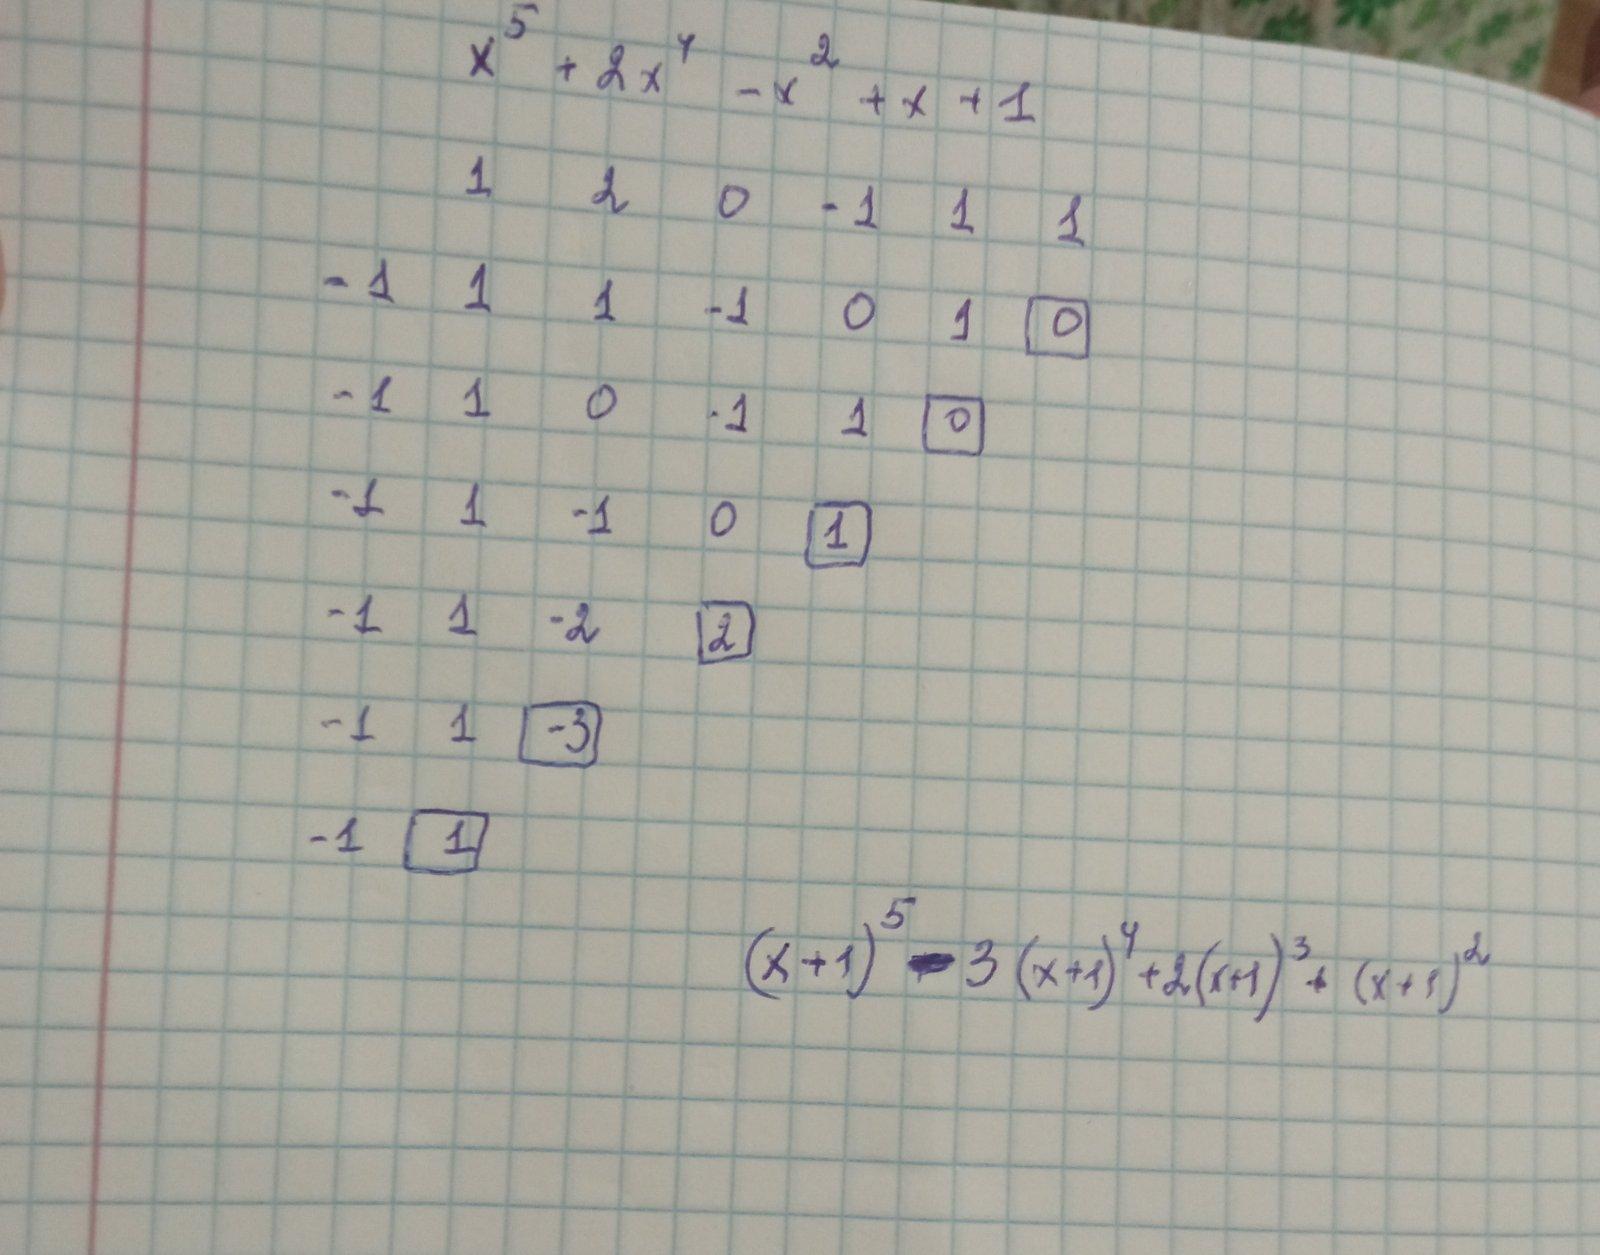 x⁵ + 2x⁴ - x² + x + 1
1 2 0 -1 1 1
-1 1 1 -1 0 1 0
-1 1 0 -1 1 0
-1 1 -1 0 1
-1 1 -2 2
-1 1 -3
-1 1
(x+1)⁵ - 3(x+1)⁴ + 2(x+1)³ + (x+1)²